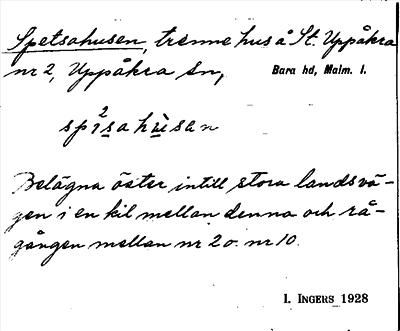 Spetsahusen, trenne hus å St. Uppåkra
nr 2, Uppåkra sn, Bara hd, Malm. l.
2
spìsahùsan
Belägna öster intill stora landsvä-
gen i en kil mellan denna och rå-
gången mellan nr 2 o. nr 10.
I. INGERS 1928